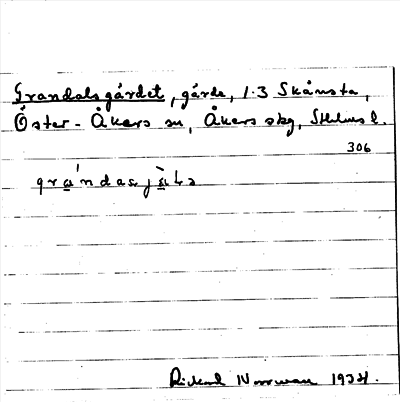 Grandalsgärdet, gärde, 1.3 Skånsta,
Öster-Åkers sn, Åkers skg, Sthlms l.
306
Rickard Norrman 1934.